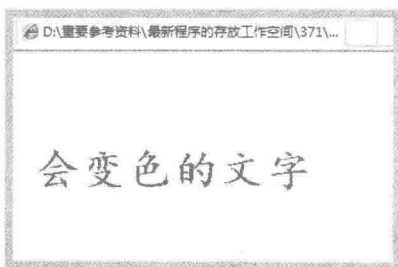 D:\重要参考资料\最新程序的存放工作空间\371\...
会变色的文字